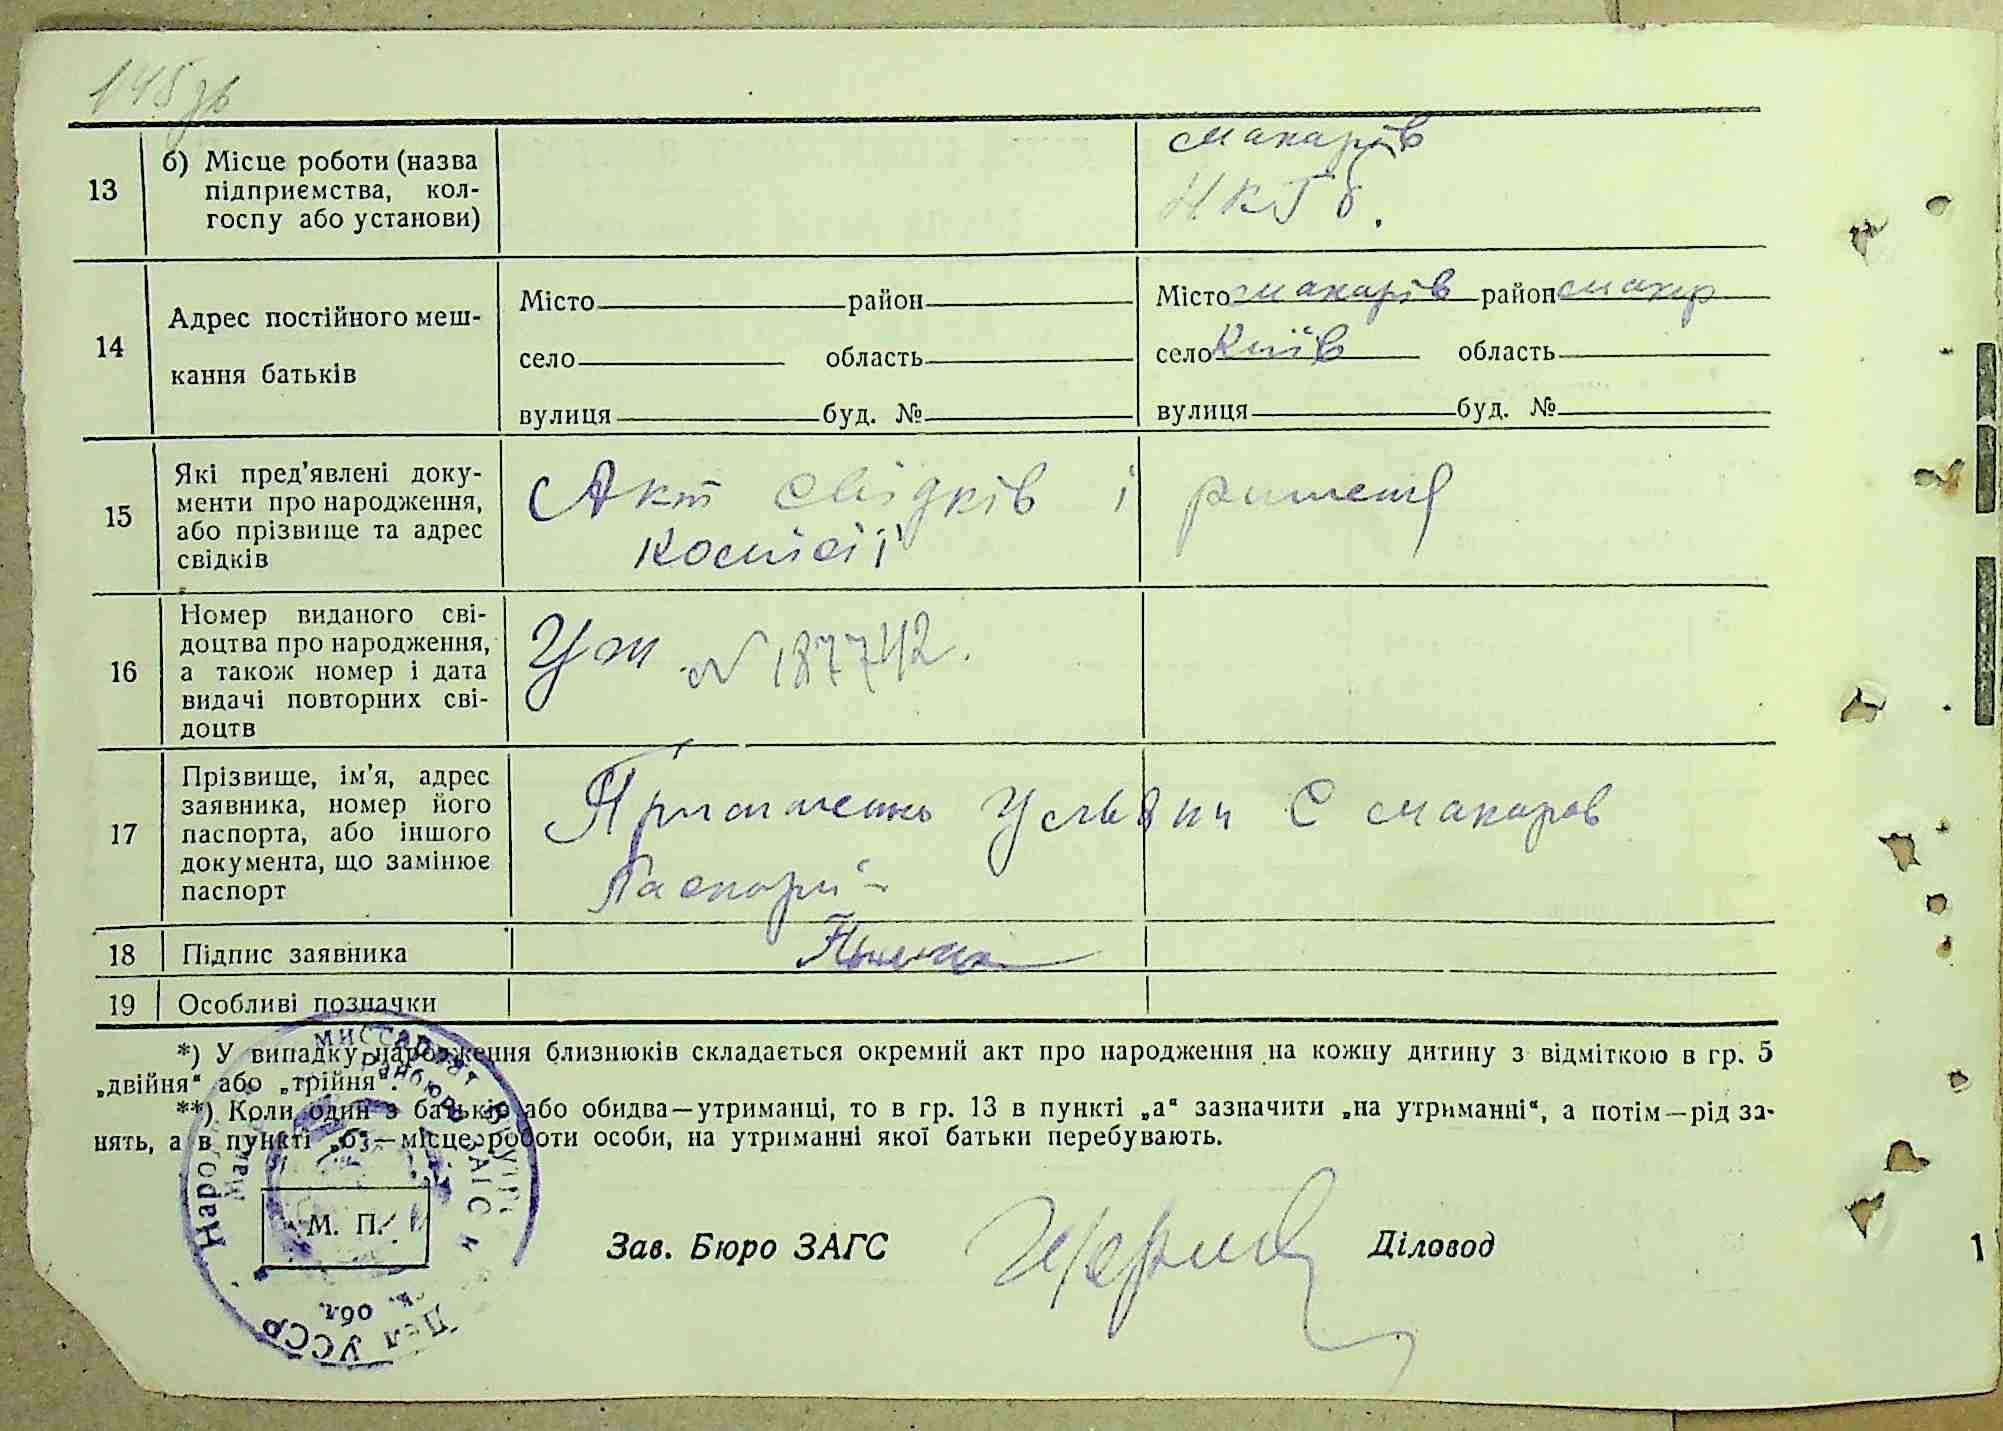 145зв
13 б) Місце роботи (назва
підприємства, кол-
госпу або установи)
Макарів
НКГб.
14 Адрес постійного меш-
кання батьків
Місто район
село область
вулиця буд. №
Місто Макарів район Макар
село Київ область
вулиця буд. №
15 Які пред'явлені доку-
менти про народження,
або прізвище та адрес
свідків
Акт свідків і
комісії
16 Номер виданого сві-
доцтва про народження,
а також номер і дата
видачі повторних сві-
доцтв
№ 187742.
17 Прізвище, ім'я, адрес
заявника, номер його
паспорта, або іншого
документа, що замінює
паспорт
С Макаров
18 Підпис заявника
19 Особливі позначки
*) У випадку народження близнюків складається окремий акт про народження на кожну дитину з відміткою в гр. 5
„двійня“ або „трійня“.
**) Коли один з батьків або обидва—утриманці, то в гр. 13 в пункті „а“ зазначити „на утриманні“, а потім—рід за-
нять, а в пункті „б“—місце роботи особи, на утриманні якої батьки перебувають.
М. П.
Зав. Бюро ЗАГС Діловод
обл.
УССР
1